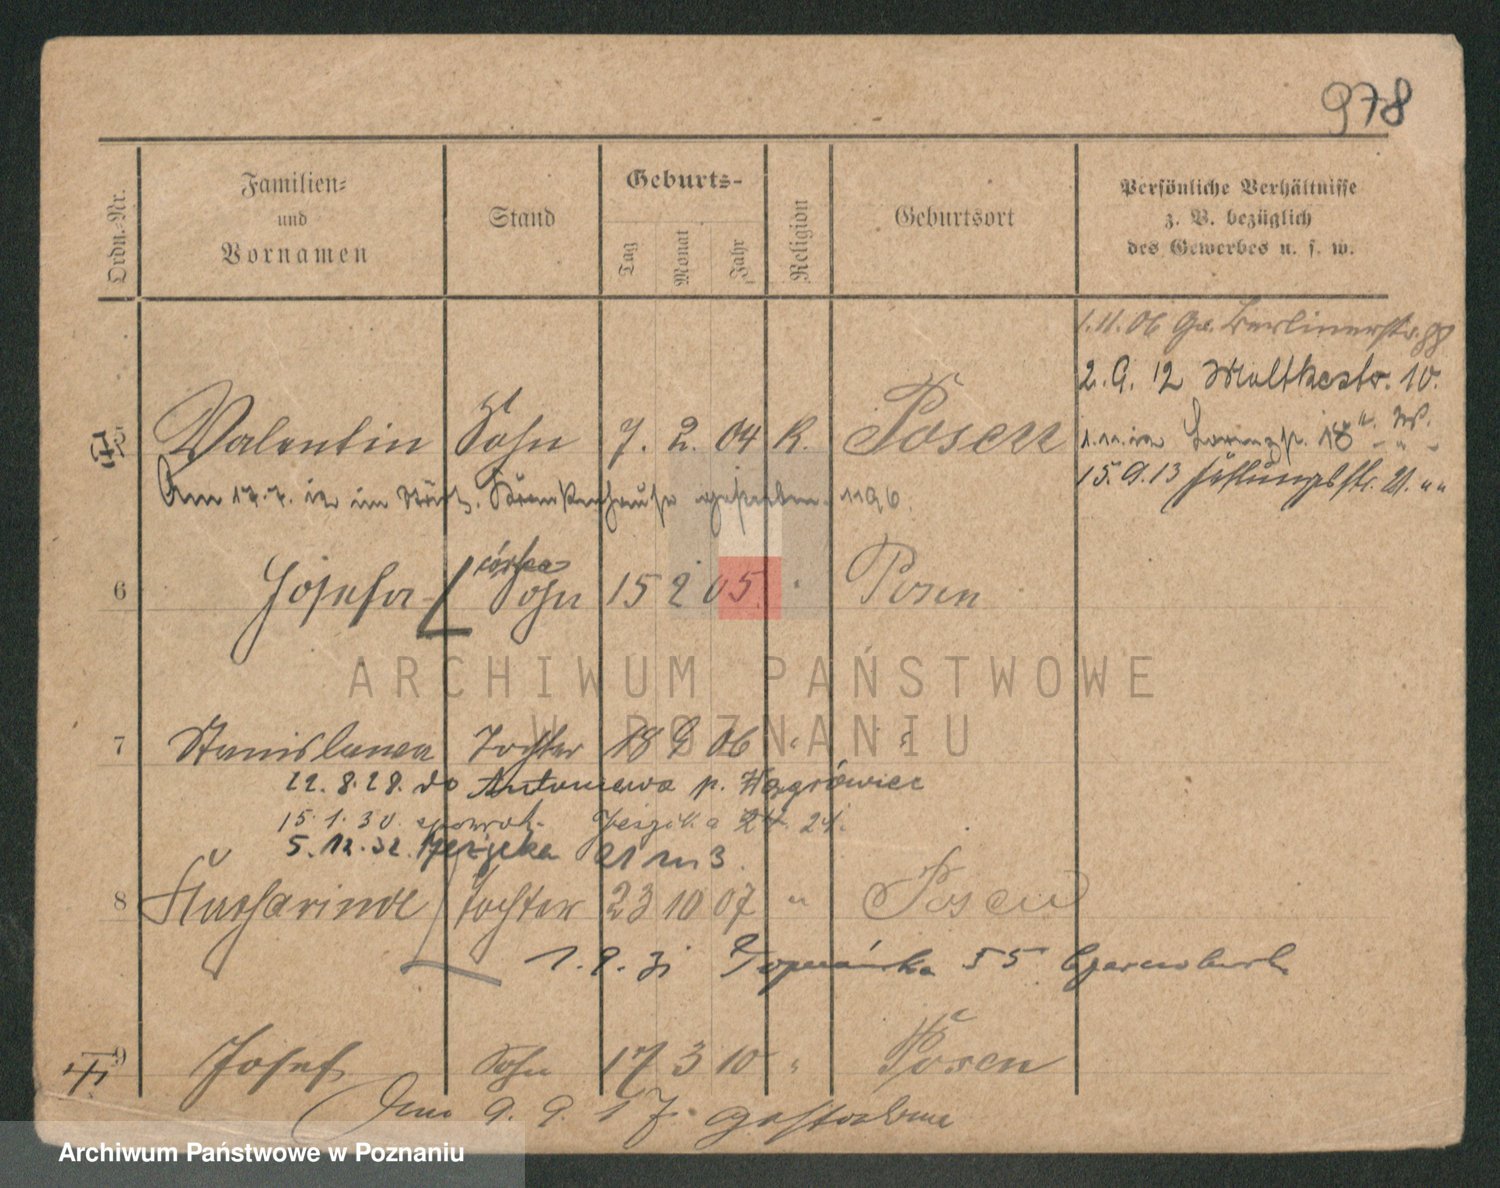 978
Ordn.-Nr. Familien- und Vornamen Stand Geburts- Tag Monat Jahr Religion Geburtsort Persönliche Verhältnisse z. B. bezüglich des Gewerbes u. s. w.
1.11.06 Berlinerstr.
2.9.12 Moltkestr. 10.
5 Valentin Sohn 7. 2. 04 K. Posen
18
Am 17.7.12 im Städt. Krankenhause gestorben. 1196.
15.9.13 21. " "
6 Josefa córka Sohn 15 2 05. " Posen
ARCHIWUM PAŃSTWOWE
W POZNANIU
7 Stanislawa Tochter 18 9 06 " "
22.8.28. do Antoniewa p. Wągrówiec
15.1.30. 21.
5.12.32. 21 m 3.
8 Katharine Tochter 23 10 07 " Posen
1.9.31 55
9 Josef Sohn 17 3 10 " Posen
Am 9.9.17. gestorben
Archiwum Państwowe w Poznaniu